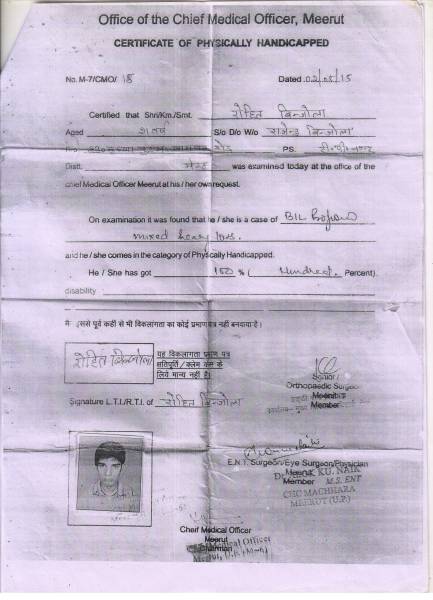 Office of the Chief Medical Officer, Meerut
CERTIFICATE OF PHYSICALLY HANDICAPPED
No. M-7/CMO/ 18 Dated 02/05/15
Certified that Shri/Km./Smt. रोहित बिन्जोला
Aged S/o D/o W/o राजेन्द्र बिन्जोला
PS.
Distt. मेरठ was examined today at the office of the
chief Medical Officer Meerut at his / her own request.
On examination it was found that he / she is a case of B/L Profound
mixed hearing loss.
and he / she comes in the category of Physically Handicapped.
He / She has got 100 % ( Hundred Percent)
disability
मैंने इससे पूर्व कहीं से भी विकलांगता का कोई प्रमाण पत्र नहीं बनवाया है।
रोहित बिन्जोला
यह विकलांगता प्रमाण पत्र
क्षतिपूर्ति / क्लेम केस के
लिये मान्य नहीं है।
Senior
Orthopaedic Surgeon
Member
Signature L.T.I./R.T.I. of रोहित बिन्जोला
E.N.T. Surgeon/Eye Surgeon/Physician
KU. NAIK
Member M.S. ENT
CHC MACHHARA
MEERUT (U.P.)
Cheif Medical Officer
Meerut
Chairman